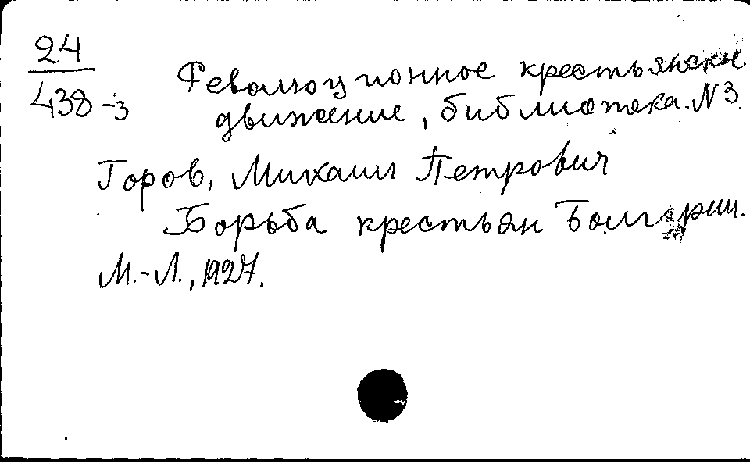 24
438-3
Революционное крестьянски
движение, библиотека. N 3.
Горов, Михаил Петрович
Борьба крестьян Болгарии.
М.-Л., 1927.